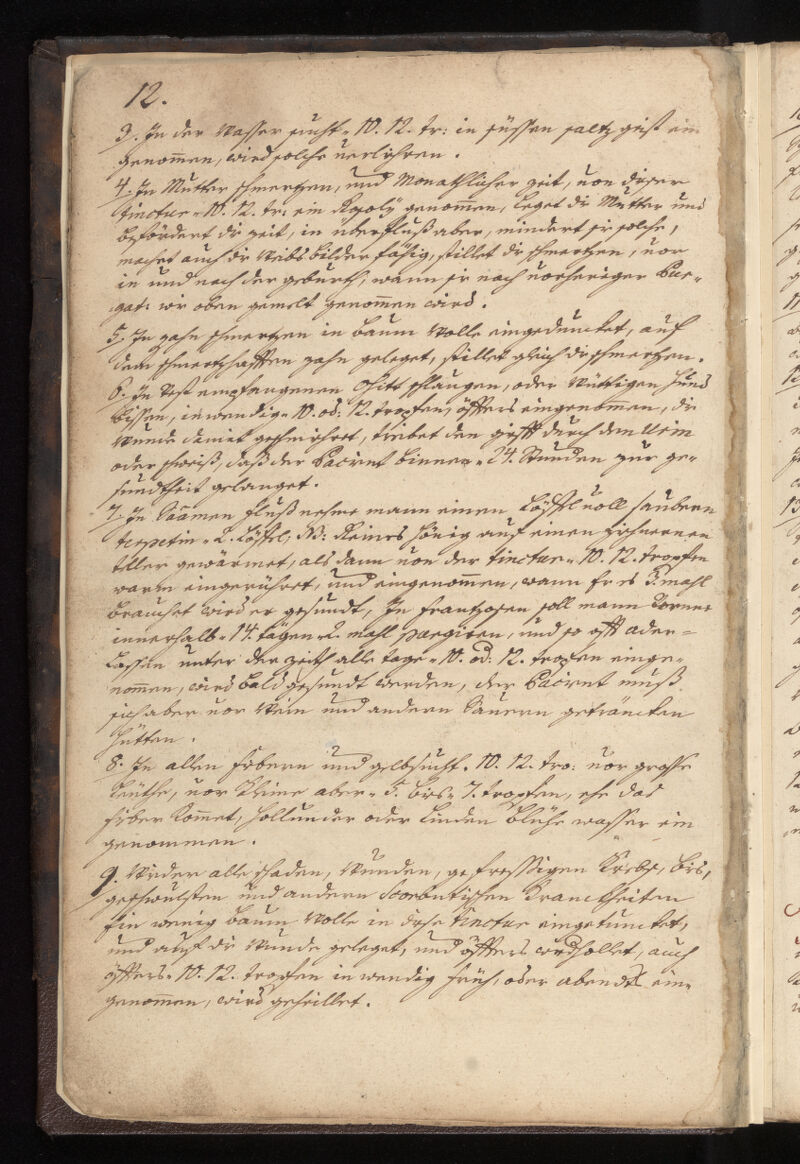 12.
3. In der Wasser sucht. 10. 12. tr: in süssen saltz geist ein
genommen, wird solche verlohren.
4. In Mutter schmertzen, und Monathlicher zeit, von diser
tinctur. 10. 12. tr: ein genommen, leget die Mutter und
befördert die zeit, in überfluß aber, mindert sie solche,
machet auch die Weibsbilder fähig, stillet die schmertzen, vor
in und nach der geburth, wann sie nach vorheriger Pur-
gat: wie oben gemelt genommen wird.
5. In zahn schmertzen in baum Wolle eingeduncket, auf
dem schmertzhafften zahn geleget, stillet gleich die schmertzen.
6. In Pest empfangenen gifft schlangen, oder Wüttigen hund
bissen, inwendig. 10. od: 12. tropfen, öffters eingenommen, die
Wunde damit geschmiehret, treibet den gifft durch den Urin
oder schweiß, daß der Pacient binnen. 24. Stunden zur ge-
sundtheit gelanget.
7. In Saamen fluß nehme mann einen Löffel voll saubern
terpetin. 2. Löffel, Reines hönig auf einen zihnernen
teller gewärmet, als dann von der tinctur. 10. 12. tropfen
warm eingerühret, und eingenommen, wann Er es 3. mahl
brauchet wird er gesundt, In frantzosen soll mann
innerhalb. 14. tägen 2 mahl purgiren, und so offt ader-
lassen unter der zeith alle tage. 10. od. 12. tropfen einge-
nommen, wird bald gesundt werden, der Pacient muß
sich aber vor Wein und andern Sauern geträncken
hütten.
8. In allen fiebern und gelbsucht. 10. 12. tro: vor grosse
Leuthe, vor Kleine aber. 5. bis. 7. tropfen, ehe das
fieber kommet, hollunder oder Linden blühe wasser ein
genommen.
9. Wider alle schaden, Wunden, gefressigen Krebs, bis,
geschwulsten und andern Scorbutischen Kranckheiten
Ein wenig baum Wolle in dise tinctur eingetuncket,
und auf die Wunde geleget, und öffters widhollet, auch
öffters. 10. 12. tropfen in wendig früh, oder abendts ein-
genommen, wird geheillet.